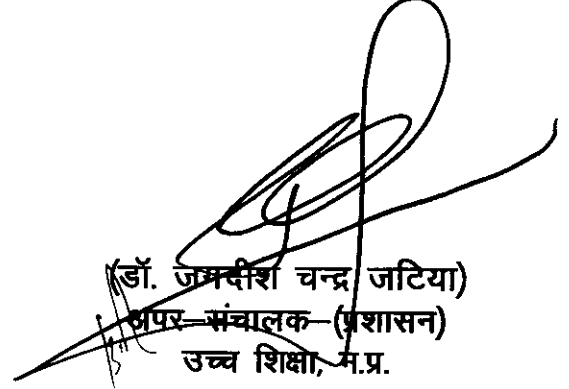 (डॉ. जगदीश चन्द्र जटिया)
अपर संचालक (प्रशासन)
उच्च शिक्षा, म.प्र.